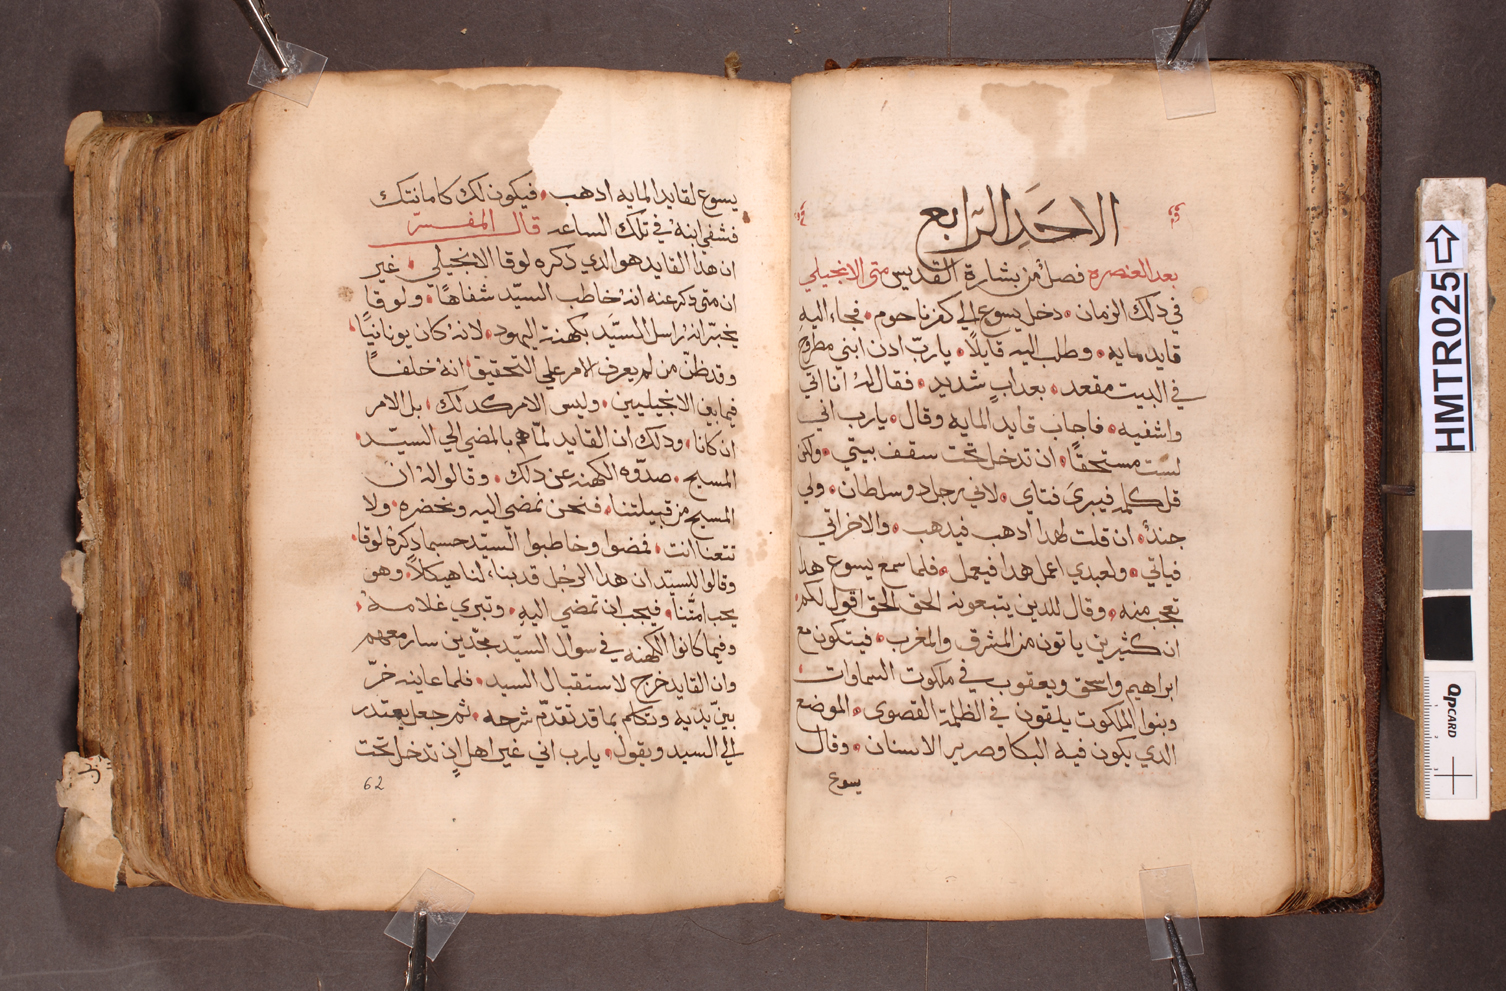 الاحَدِ الرّابع
بعد العنصره فصلٌ من بشارة القديس متى الانجيلي
في ذلك الزمان دخل يسوع الى كفرناحوم فجاء اليه
قايد مايه وطلب اليه قايلًا يا ربّ ادن ابني مطروحَ
في البيت مقعد بعدابٍ شديد فقال لهُ انا اتي
واشفيه فاجاب قايد المايه وقال يا رب اني
لست مستحقًا ان تدخل تحت سقف بيتي ولكن
قل كلمه فيبرئ فتاي لاني رجل دو سلطان ولي
جندٌ ان قلت لهدا ادهب فيدهب والاخر اتي
فياتي ولعبدي اعمل هدا فيعمل فلما سمع يسوع هدا
تعجب منه وقال للدين يتبعونه الحق الحق اقول لكم
ان كثيرين ياتون من المشرق والمغرب فيتكون مع
ابراهيم واسحق ويعقوب في ملكوت السماوات
وبنوا الملكوت يلقون في الظلمة القصوى الموضع
الدي يكون فيه البكا وصرير الاسنان وقال
يسوع
يسوع لقايد المايه ادهب فيكون لك كامانتك
فشفي ابنهُ في تلك الساعه قال المفسرّ
ان هدا القايد هو الدي دكره لوقا الانجيلي غير
ان متى دكر عنه انهُ خاطب السيّد شفاهًا ولوقا
يخبّر انه راسل السيّد بكهنة اليهود لانهُ كان يونانيًا
وقد ظنّ من لم يعرف الامر علي التحقيق انهُ خلفًا
فيما بين الانجيليين وليس الامر كدلك بل الامر
ان كانا ودلك ان القايد لمّا هم بالمضي الي السيّد
المسيح صدّوه الكهنه عن دلك وقالوا لهُ ان
المسيح من قبيلتنا فنحن نمضي اليه ونحضره ولا
تتعنا انت فمضوا وخاطبوا السيّد حسبما دكرهُ لوقا
وقالوا للسيّد ان هدا الرجُل قد بناهُ لنا هيكلًا وهو
يحب امتّنا فيجب ان تمضي اليهِ وتبري غلامهُ
وفيما كانوا الكهنه في سوال السيّد مجدّين سار معهم
وان القايد خرج لاستقبال السيد فلما عاينه خرّ
بين يديه وتكلم بما قد تقدّم شرحه ثم جعل يعتدر
الي السيد ويقول يا رب اني غير اهل ان تدخل تحت
62
HMTR025
CARD